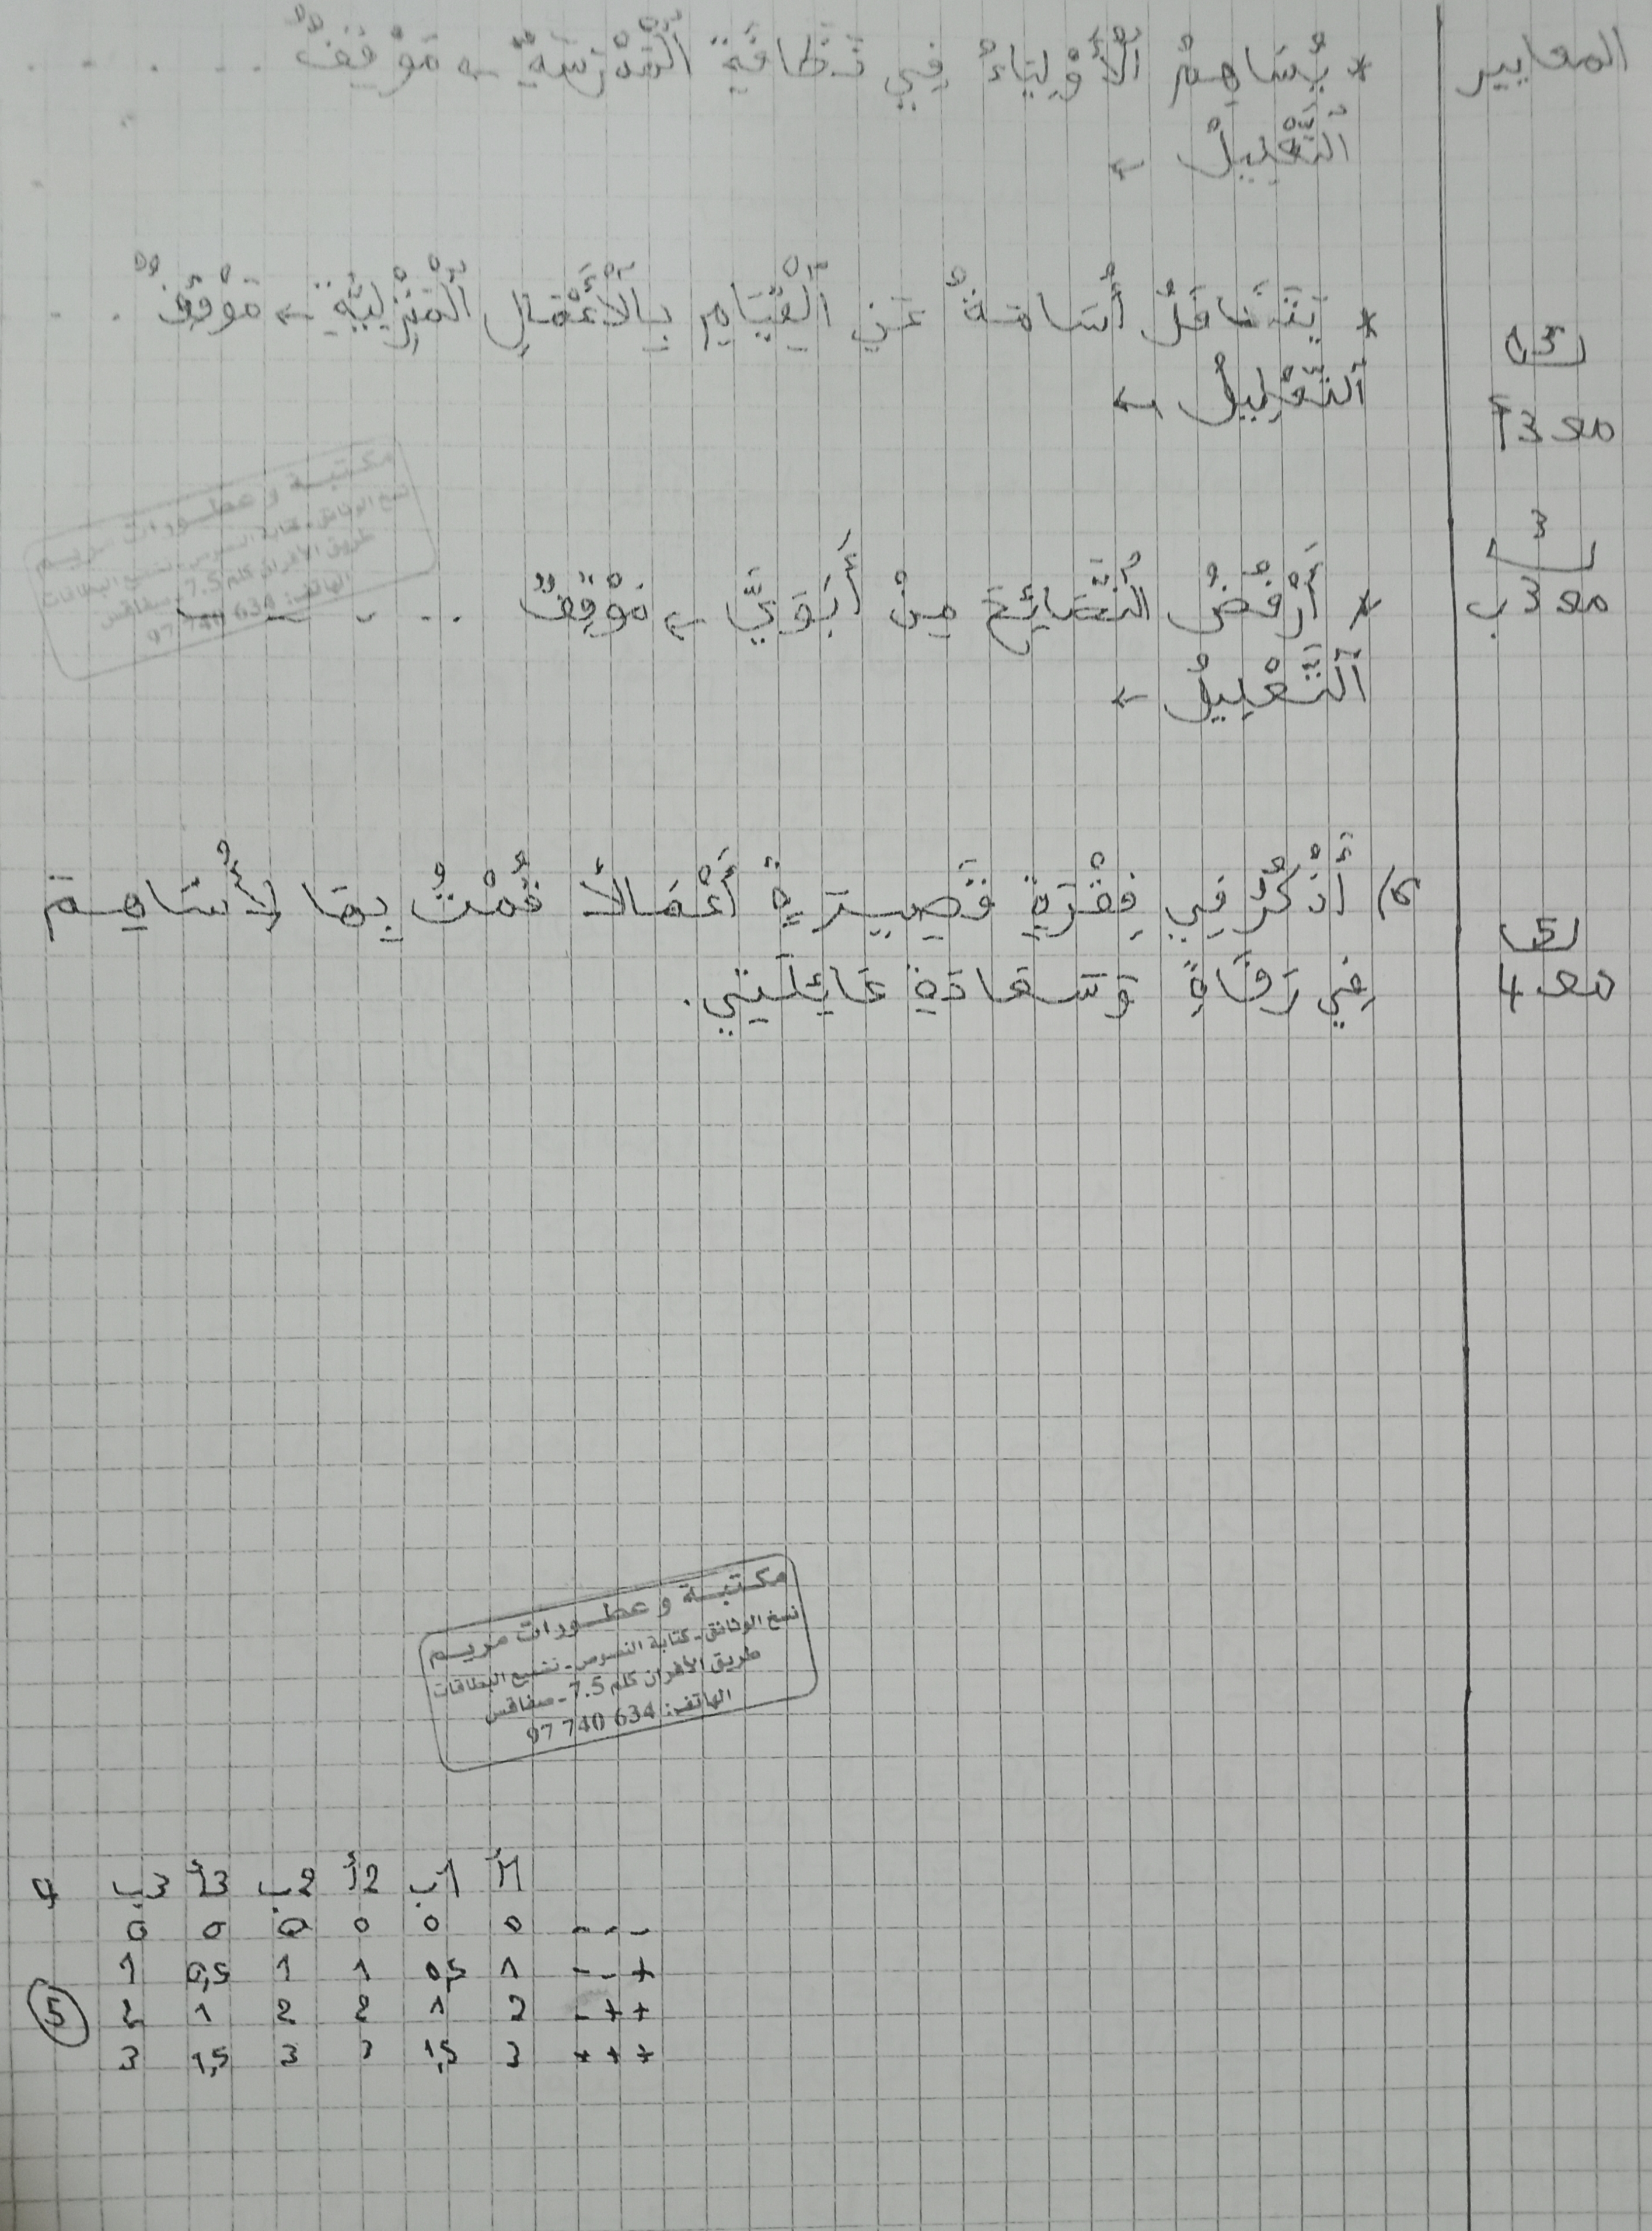 المعايير
* يُسَاهِمُ ٱلْأَوْلِيَاءُ فِي نَظَافَةِ ٱلْمَدْرَسَةِ ← مَوْقِفٌ . . . . .
ٱلتَّعْلِيلُ ←
* يَتَغَافَلُ أُسَامَةُ عَنِ ٱلْقِيَامِ بِٱلْأَعْمَالِ ٱلْمَنْزِلِيَّةِ ← مَوْقِفٌ . .
1,5
ٱلتَّعْلِيلُ ←
مع 3أ
مكتبة و عطورات مريم
نسخ الوثائق - كتابة النصوص - تشميع البطاقات
طريق الأفران كلم 7.5 - صفاقس
الهاتف: 97 740 634
3
* أَرْفُضُ ٱلنَّصَائِحَ مِنْ أَبَوَيَّ ← مَوْقِفٌ . . . . . .
مع 3ب
ٱلتَّعْلِيلُ ←
6/ أَذْكُرُ فِي فِقْرَةٍ قَصِيرَةٍ أَعْمَالًا قُمْتُ بِهَا لِأُسَاهِمَ
5
فِي رَفَاهِ وَسَعَادَةِ عَائِلَتِي.
مع 4
مكتبة و عطورات مريم
نسخ الوثائق - كتابة النصوص - تشميع البطاقات
طريق الأفران كلم 7.5 - صفاقس
الهاتف: 97 740 634
1أ 1ب 2أ 2ب 3أ 3ب 4
--- 0 0 0 0 0 0
--+ 1 0,5 1 1 0,5 1
-++ 2 1 2 2 1 2 5
+++ 3 1,5 3 3 1,5 3